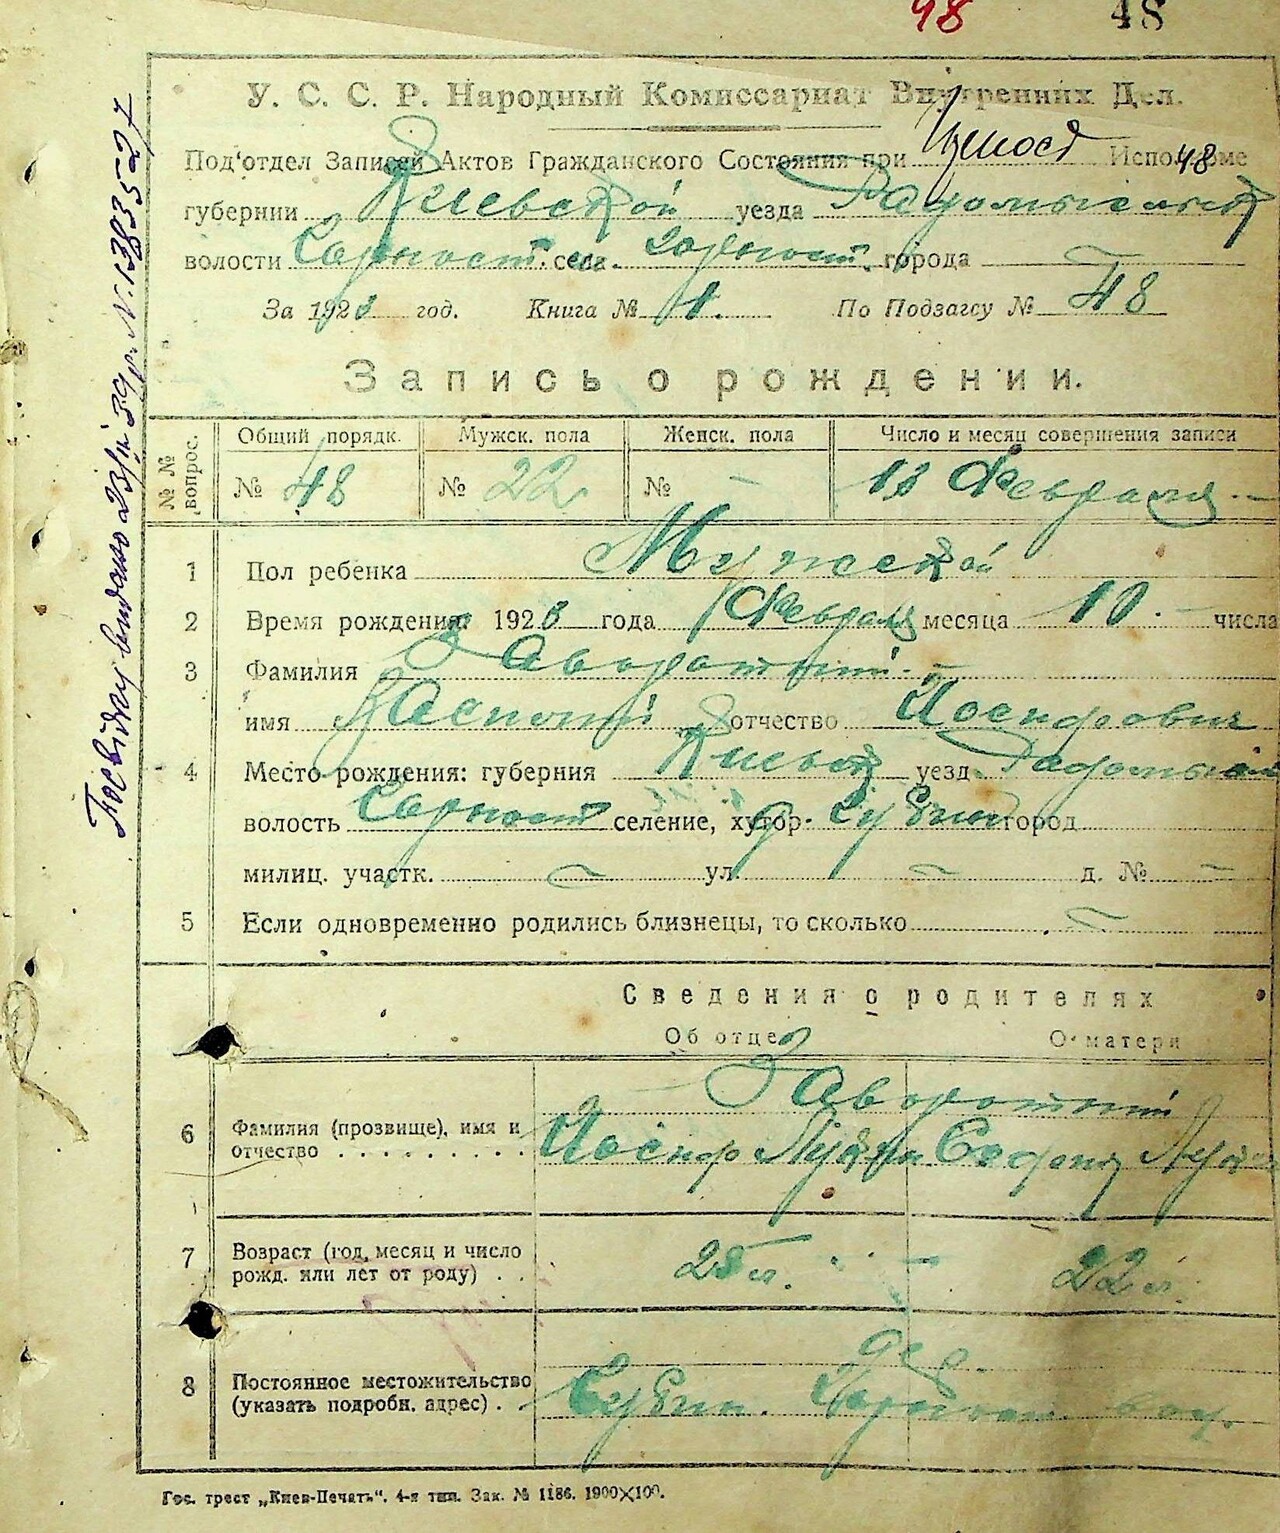 48 48
У. С. С. Р. Народный Комиссариат Внутренних Дел.
Под'отдел Записей Актов Гражданского Состояния при 48
губернии Киевской уезда Радомысльск
волости села города
За 1923 год. Книга № 1. По Подзагсу № 48
Запись о рождении.
№ № вопрос. Общий порядк. Мужск. пола Женск. пола Число и месяц совершения записи
№ 48 № 22 № - 13 Февраля -
1 Пол ребенка Мужской
2 Время рождения: 1923 года Февраля месяца 10 числа
3 Фамилия Заворотний
имя отчество Иосифович
4 Место рождения: губерния Киевск уезд Радомысл
волость селение, хутор город
милиц. участк. – ул. – д. № –
5 Если одновременно родились близнецы, то сколько –
Сведения о родителях
Об отце О матери
Заворотний
6 Фамилия (прозвище), имя и
отчество Иосиф Лукин
7 Возраст (год, месяц и число
рожд. или лет от роду) 25 л. 22 л.
дер.
8 Постоянное местожительство
(указать подробн. адрес)
Гос. трест „Киев-Печать". 4-я тип. Зак. № 1186. 1900×100.
видано 39 р. N. 1383527